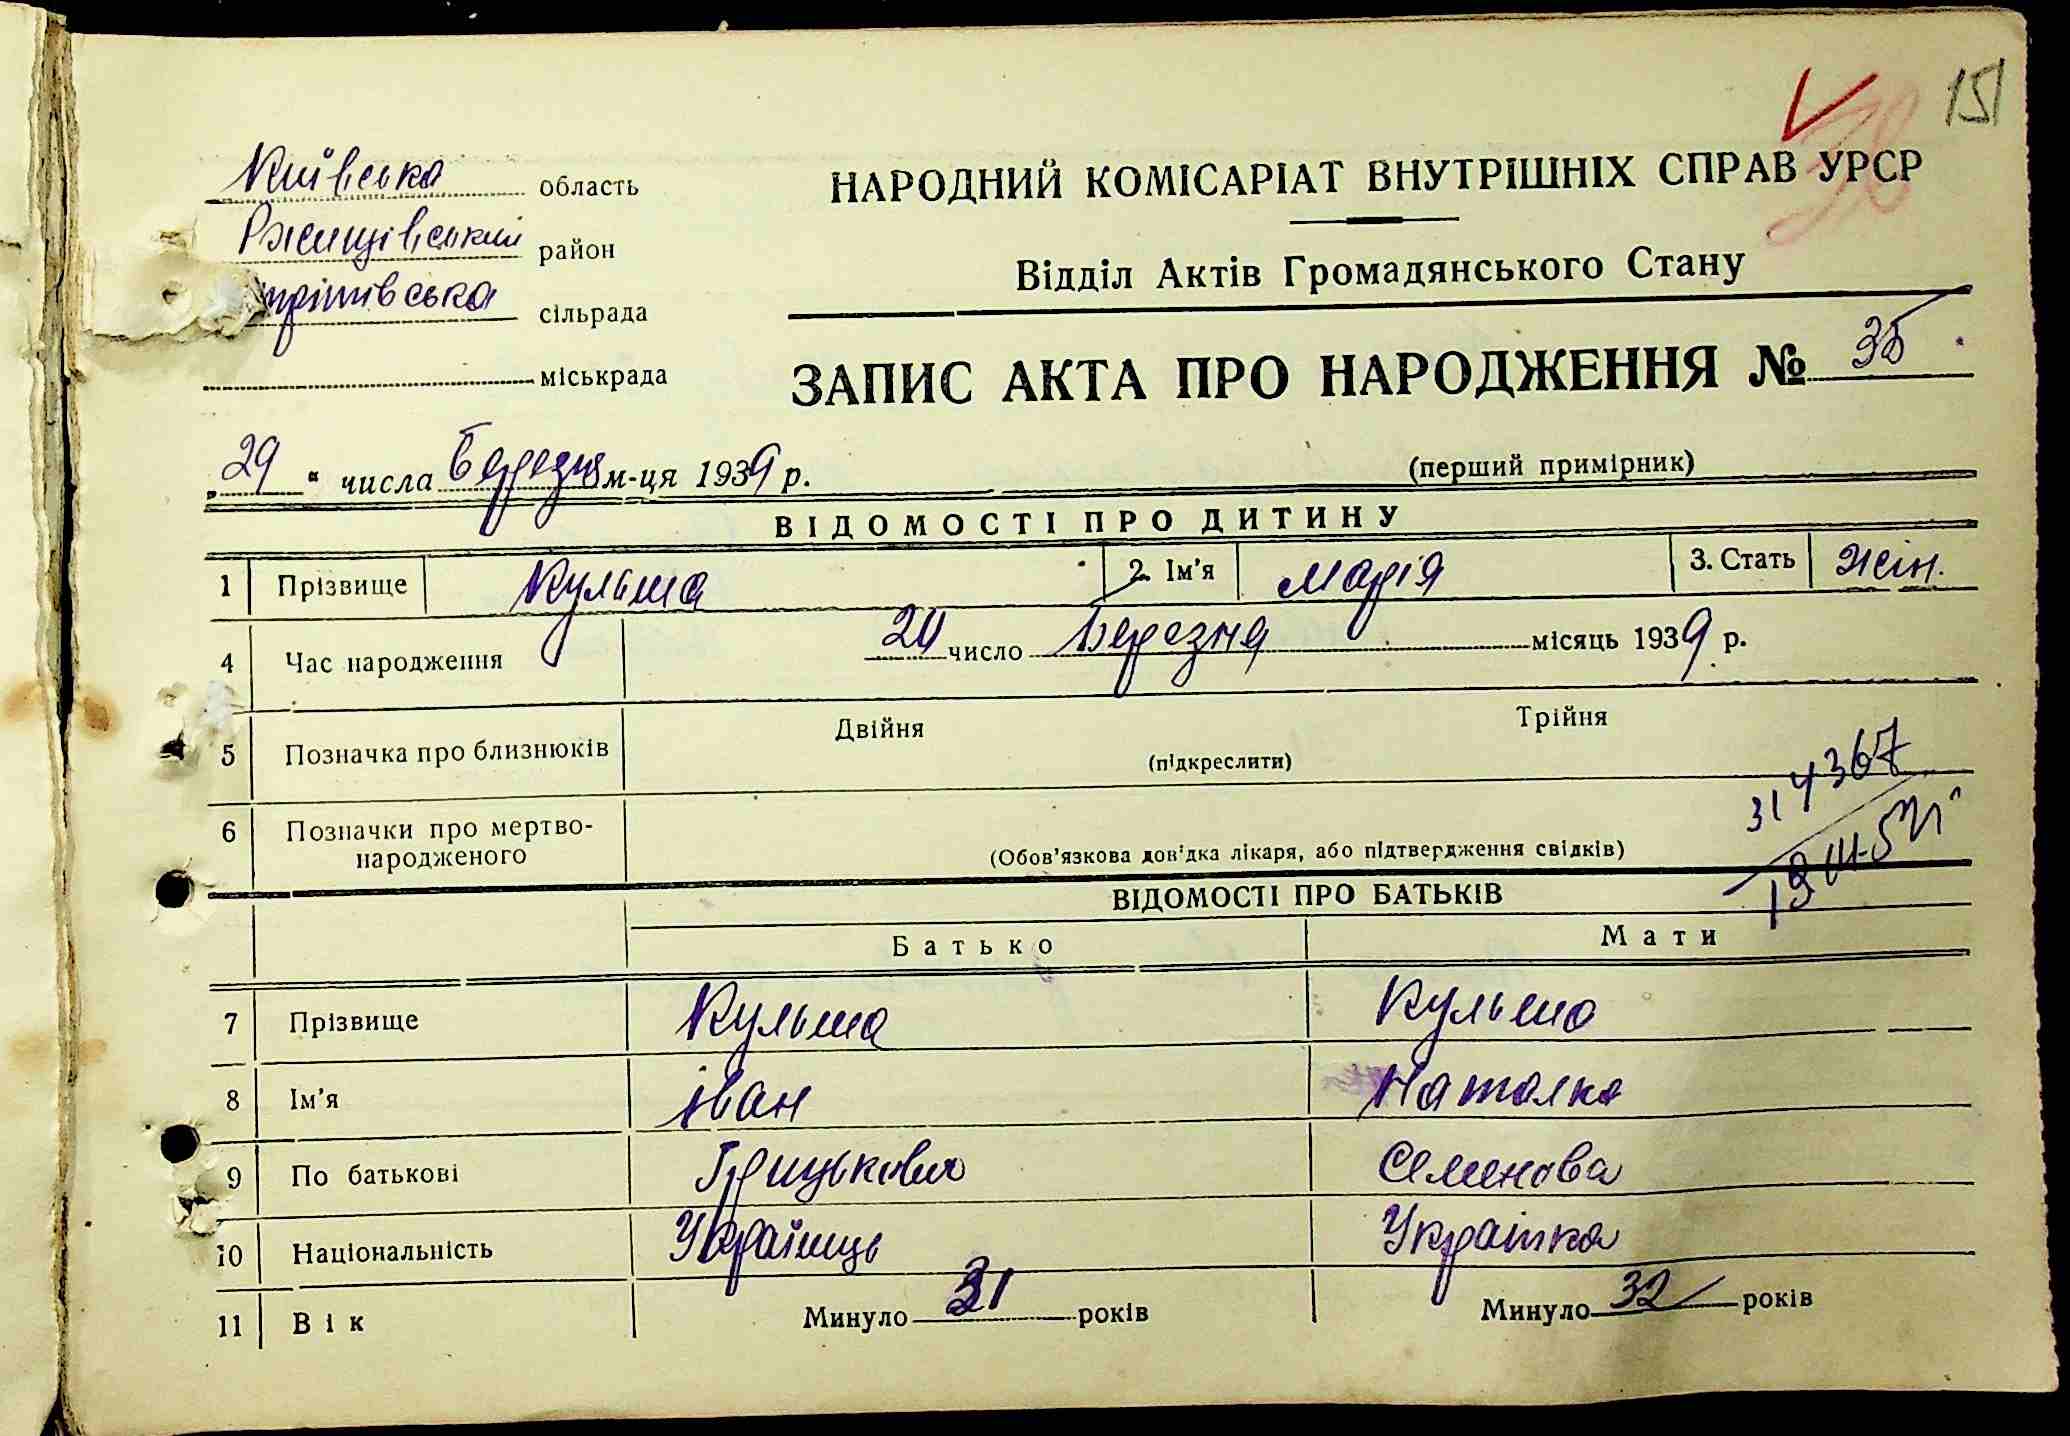 151
38
Київська область
Ржищівський район
сільрада
міськрада
НАРОДНИЙ КОМІСАРІАТ ВНУТРІШНІХ СПРАВ УРСР
Відділ Актів Громадянського Стану
ЗАПИС АКТА ПРО НАРОДЖЕННЯ №
„29" числа Березня м-ця 1939 р.
(перший примірник)
ВІДОМОСТІ ПРО ДИТИНУ
1 Прізвище Кульша 2. Ім'я Марія 3. Стать жін.
4 Час народження 20 число Березня місяць 1939 р.
5 Позначка про близнюків Двійня Трійня
(підкреслити)
314367
6 Позначки про мертво-
народженого
(Обов'язкова дов'дка лікаря, або підтвердження свідків)
ВІДОМОСТІ ПРО БАТЬКІВ
Батько Мати
7 Прізвище Кульша Кульша
8 Ім'я Іван Наталка
9 По батькові Грицькович Семенова
10 Національність Українець Українка
11 Вік Минуло 31 років Минуло 32 років